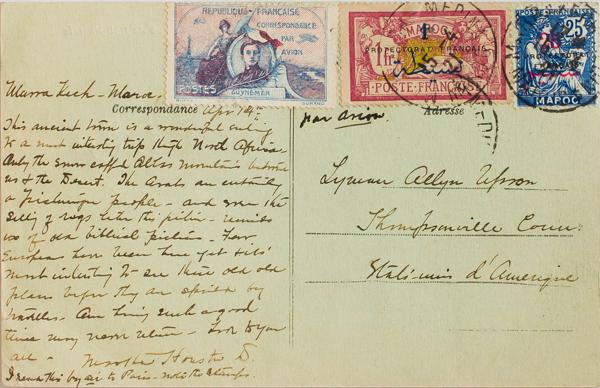 REPUBLIQUE FRANÇAISE
CORRESPONDANCE
PAR
AVION
GUYNEMER
POSTES
MAROC
1
PROTECTORAT FRANÇAIS
1fr
POSTE FRANÇAISE
25
MAROC
Marra Kech - Maroc
Correspondance Apr 14
par avion
Adresse
This ancient town is a wonderful ending
to a most interesting trip through North Africa
Only the snow capped Atlas Mountains between
us & the Desert. The Arabs are certainly
a picturesque people - and even the
selling of rugs like this picture - reminds
you of old biblical pictures - Few
Europeans have been here yet &
most interesting to see these old old
places before they are spoiled by
travellers - Am having such a good
time very warm return - Love to you
all -
I send this by air to Paris - note the stamps.
Lyman Allyn Upson
Thompsonville Conn.
Etats-unis d'Amerique